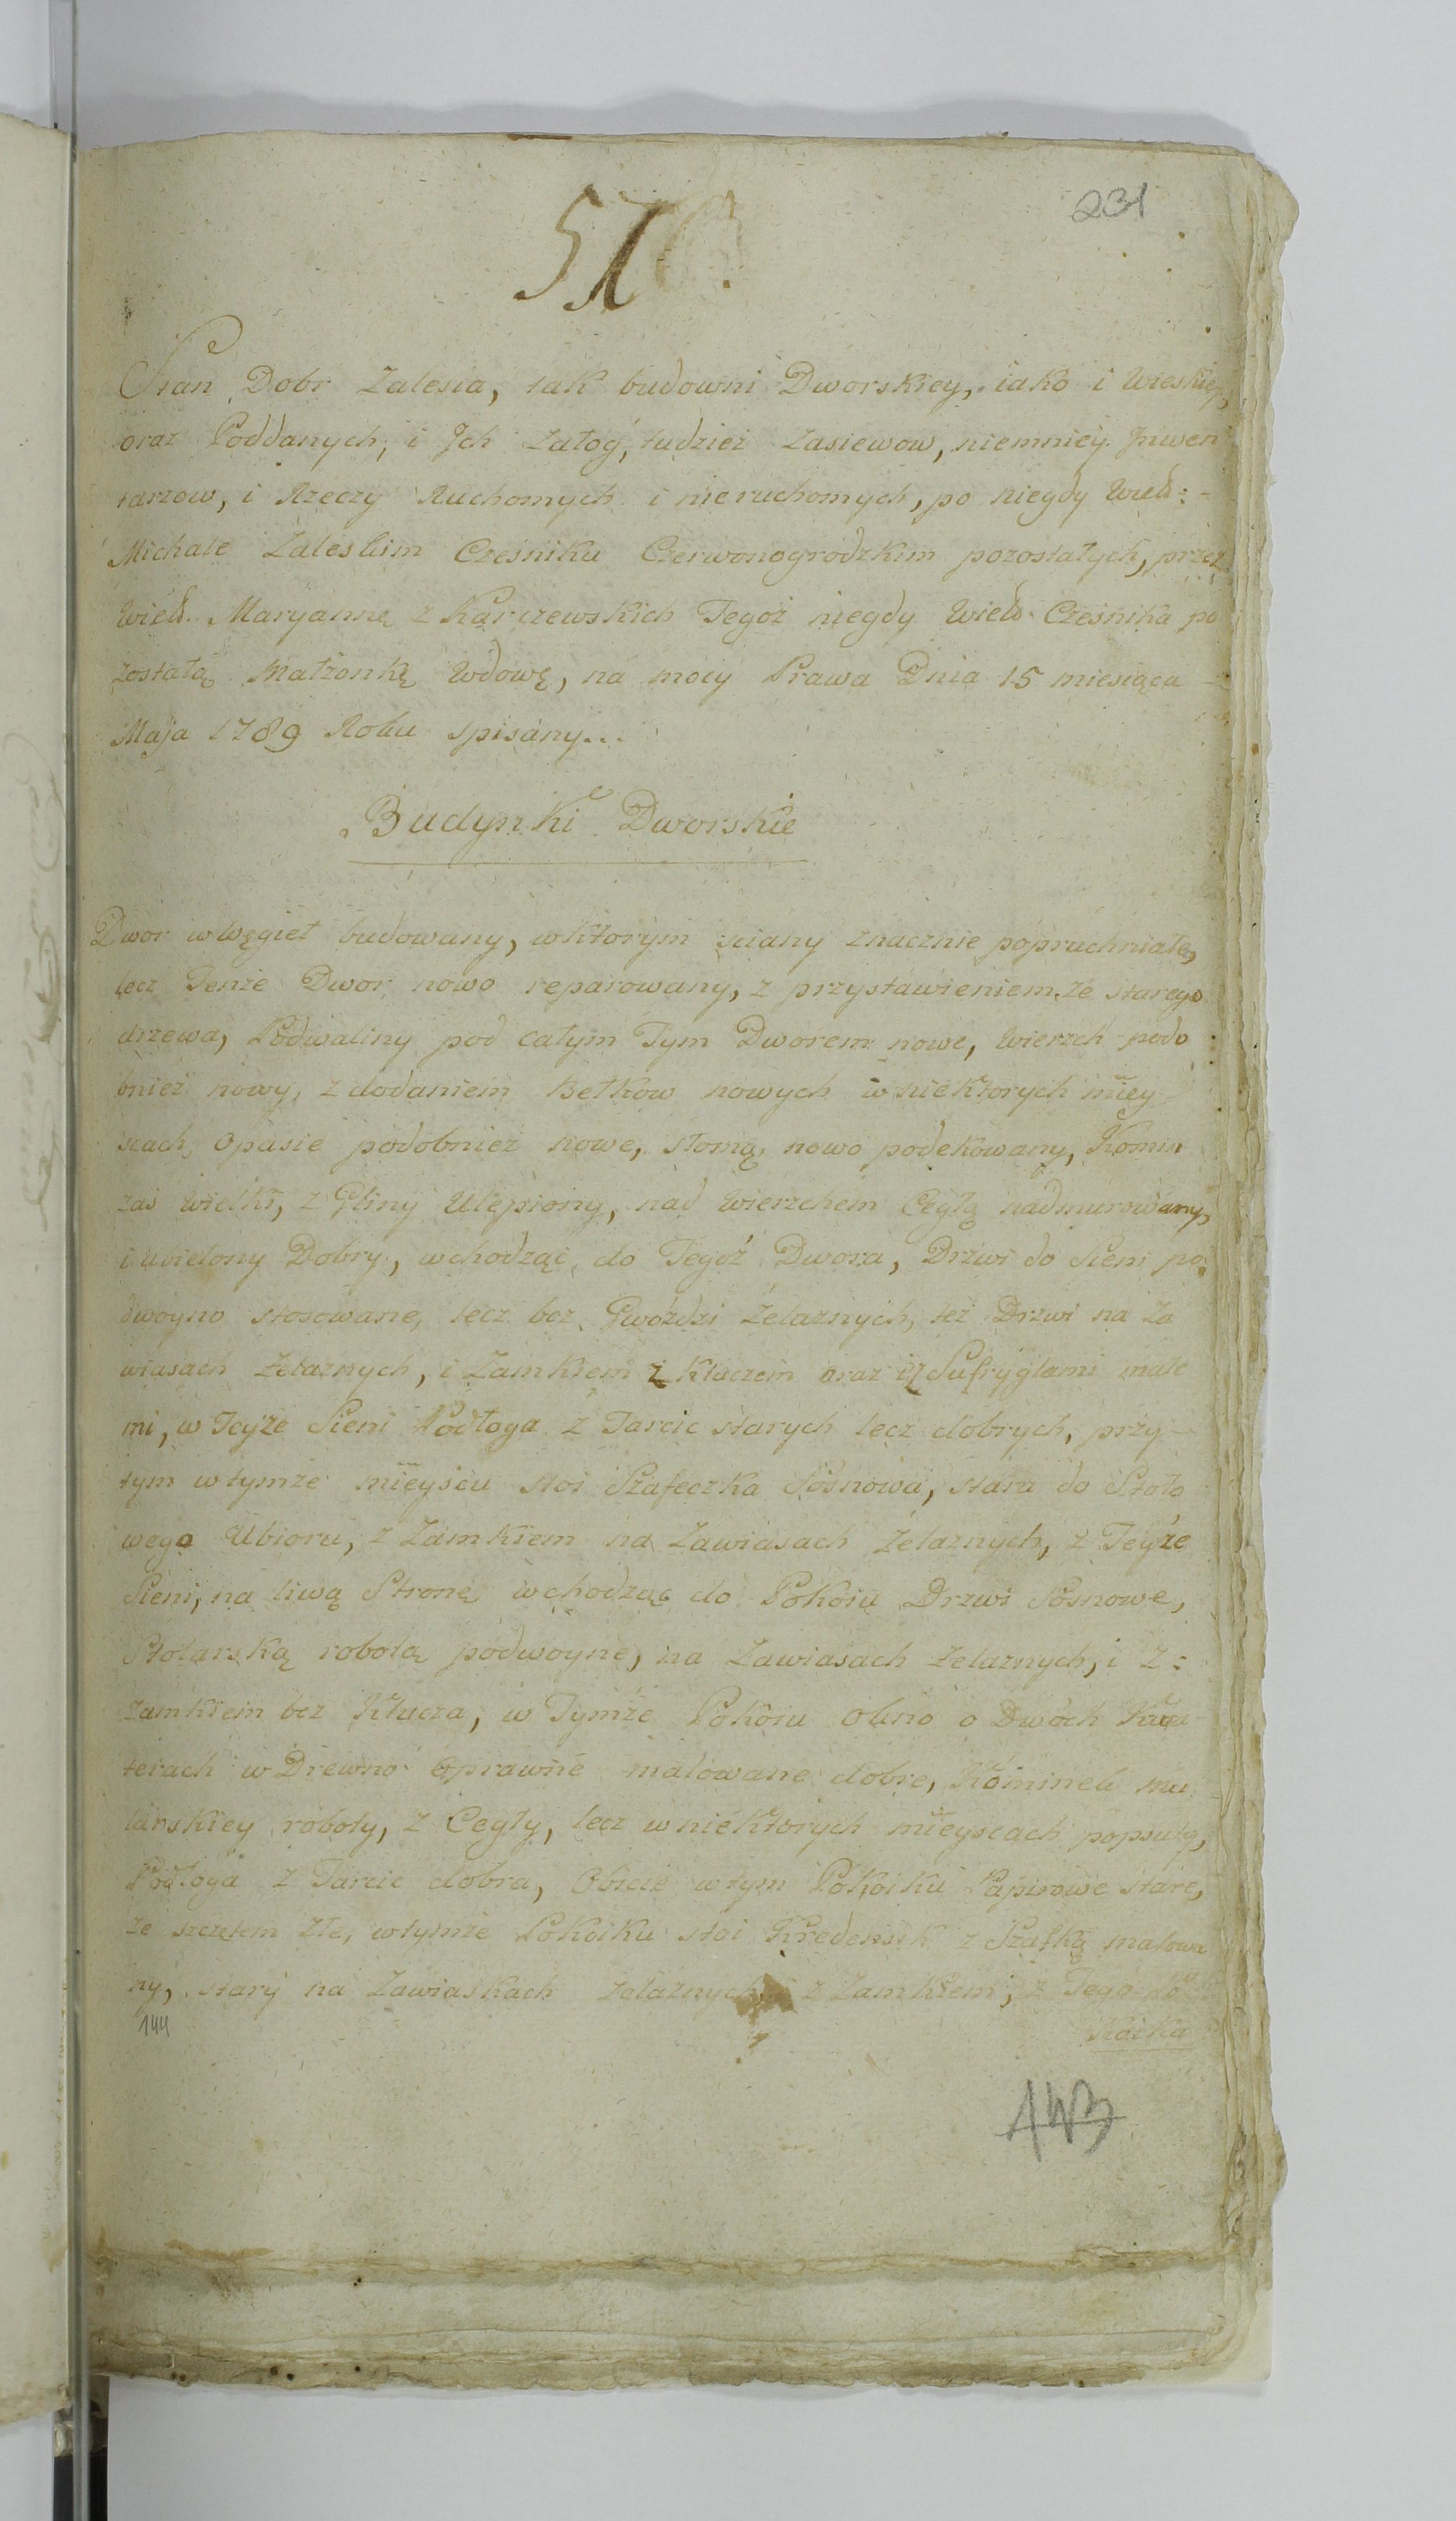 231
Stan Dobr Zalesia, tak budowni Dworskiey, iako i Wieskiey,
oraz Poddanych, i Jch Załog, tudzież Zasiewow, niemniey Jnwen
tarzow, i Rzeczy Ruchomych i nieruchomych, po niegdy Wielb:-
Michale Zaleskim Cześniku Czerwonogrodzkim pozostałych, przez
Wielb. Maryannę z Karczewskich Tegoż niegdy Wielb Cześnika po
zostałą Małżonkę Wdowę, na mocy Prawa Dnia 15 miesiąca -
Maja 1789 Roku spisany...
Budynki Dworskie
Dwor w Węgieł budowany, w ktorym sciany znacznie popruchniałe,
lecz Tenże Dwor nowo reparowany, z przystawieniem ze starego
drzewa, Podwaliny pod całym Tym Dworem nowe, Wierzch podo
bnież nowy, z dodaniem Belkow nowych w niektorych miey
scach, Opasie podobnież nowe, słomą nowo podekowany, Komin
zaś Wielki, z Gliny Ulepiony, nad Wierzchem Cegłą nadmurowany,
i ubielony Dobry, wchodząc do Tegoż Dwora, Drzwi do Sieni po:
dwoyno stosowane, lecz bez Gwoździ Żelaznych, też Drzwi na Za
wiasach Żelaznych, i Zamkiem z Kluczem oraz iz Sufryglami małe
mi, w Teyże Sieni Podłoga z Tarcic starych lecz dobrych, przy-
tym w tymże mieyscu stoi Szafeczka Sosnowa, stara do Stoło
wego Ubioru, z Zamkiem na Zawiasach Żelaznych, z Teyże
Sieni, na liwą Stronę wchodząc do Pokoiu Drzwi Sosnowe,
Stolarską robotą podwoyne, na Zawiasach żelaznych, i z:
zamkiem bez Klucza, w Tymże Pokoiu okno o Dwoch Kwa-
terach w Drewno Oprawne malowane dobre, Kominek mu
larskiey roboty, z Cegły, lecz w niektorych mieyscach popsuty,
Podłoga z Tarcic dobra, Obicie w tym Pokoiku Papirowe stare,
ze szczętem złe, w tymże Pokoiku stoi Kredensik z Szafką malowa
ny, stary na Zawiaskach żelaznych, z Zamkiem; z Tego Po
koika
144
143